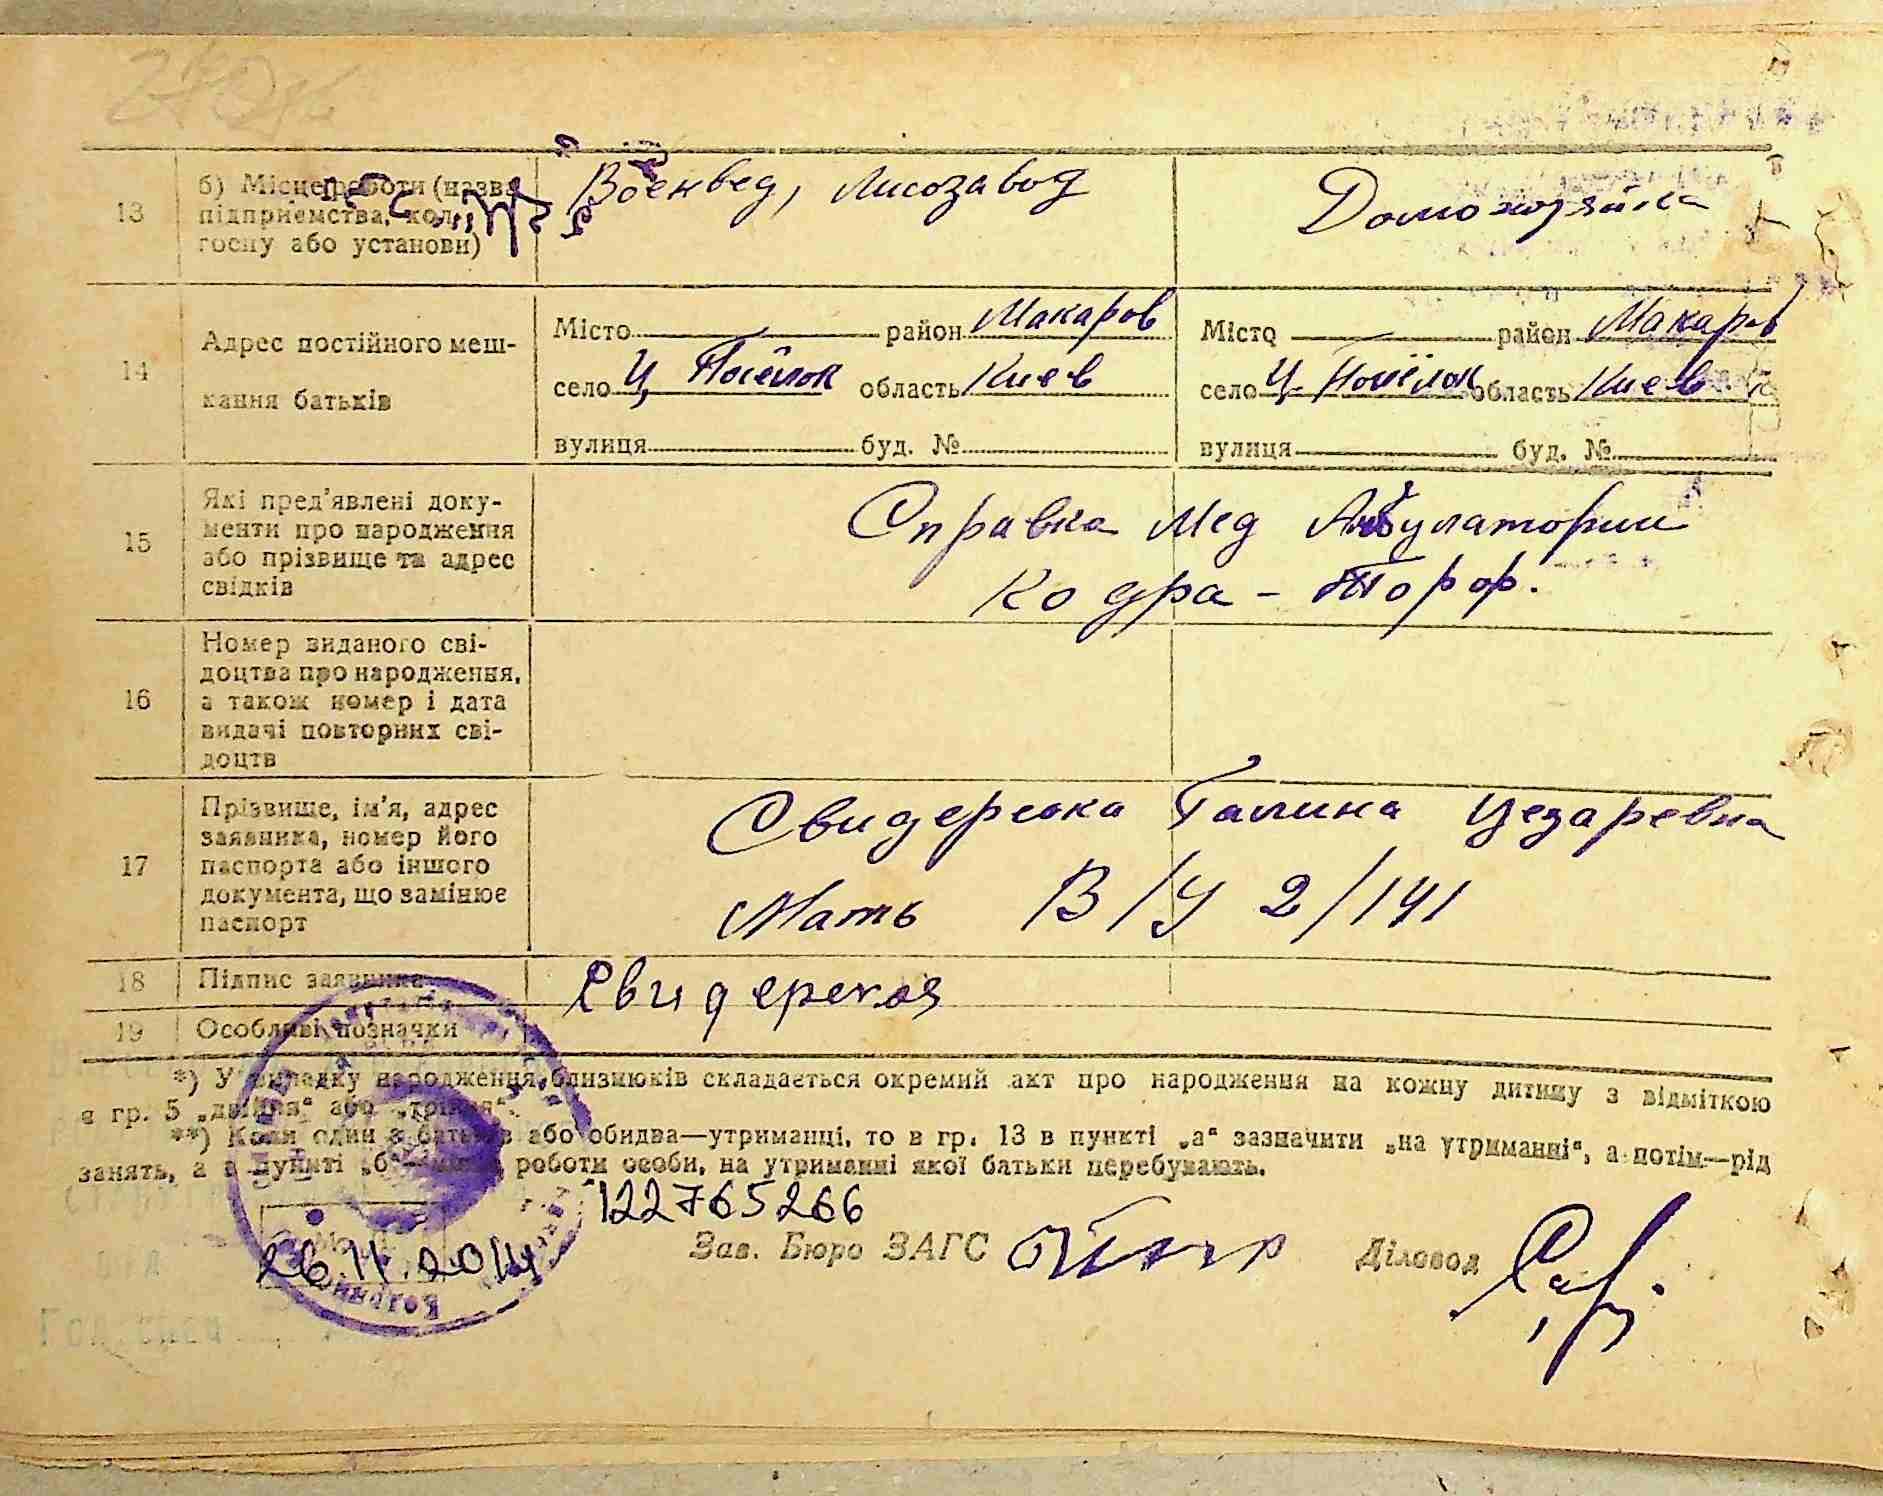 13 б) Місце роботи (назва Военвед, Лисозавод Домохозяйка
підприємства, кол-
госпу або установи)
Місто район Макаров Місто район Макаров
14 Адрес постійного меш- село Ц Посёлок область Киев село Ц. Посёлок область Киев
кання батьків
вулиця буд. № вулиця буд. №
Які пред'явлені доку-
15 менти про народження Справка Мед Амбулатории
або прізвище та адрес Кодра -
свідків
Номер виданого сві-
доцтва про народження,
16 а також номер і дата
видачі повторних сві-
доцтв
Прізвище, ім'я, адрес Свидерська Галина Цезаревна
заявника, номер його
17 паспорта або іншого Мать В/У 2/141
документа, що замінює
паспорт
18 Підпис заявника Свидерская
19 Особливі позначки
*) У випадку народження близнюків складається окремий акт про народження на кожну дитину з відміткою
в гр. 5 „двійня“ або „трійня“.
**) Коли один з батьків або обидва—утриманці, то в гр. 13 в пункті „а“ зазначити „на утриманні“, а потім—рід
занять, а в пункті „б“—місце роботи особи, на утриманні якої батьки перебувають.
122765266
Зав. Бюро ЗАГС Діловод
26.11.2014